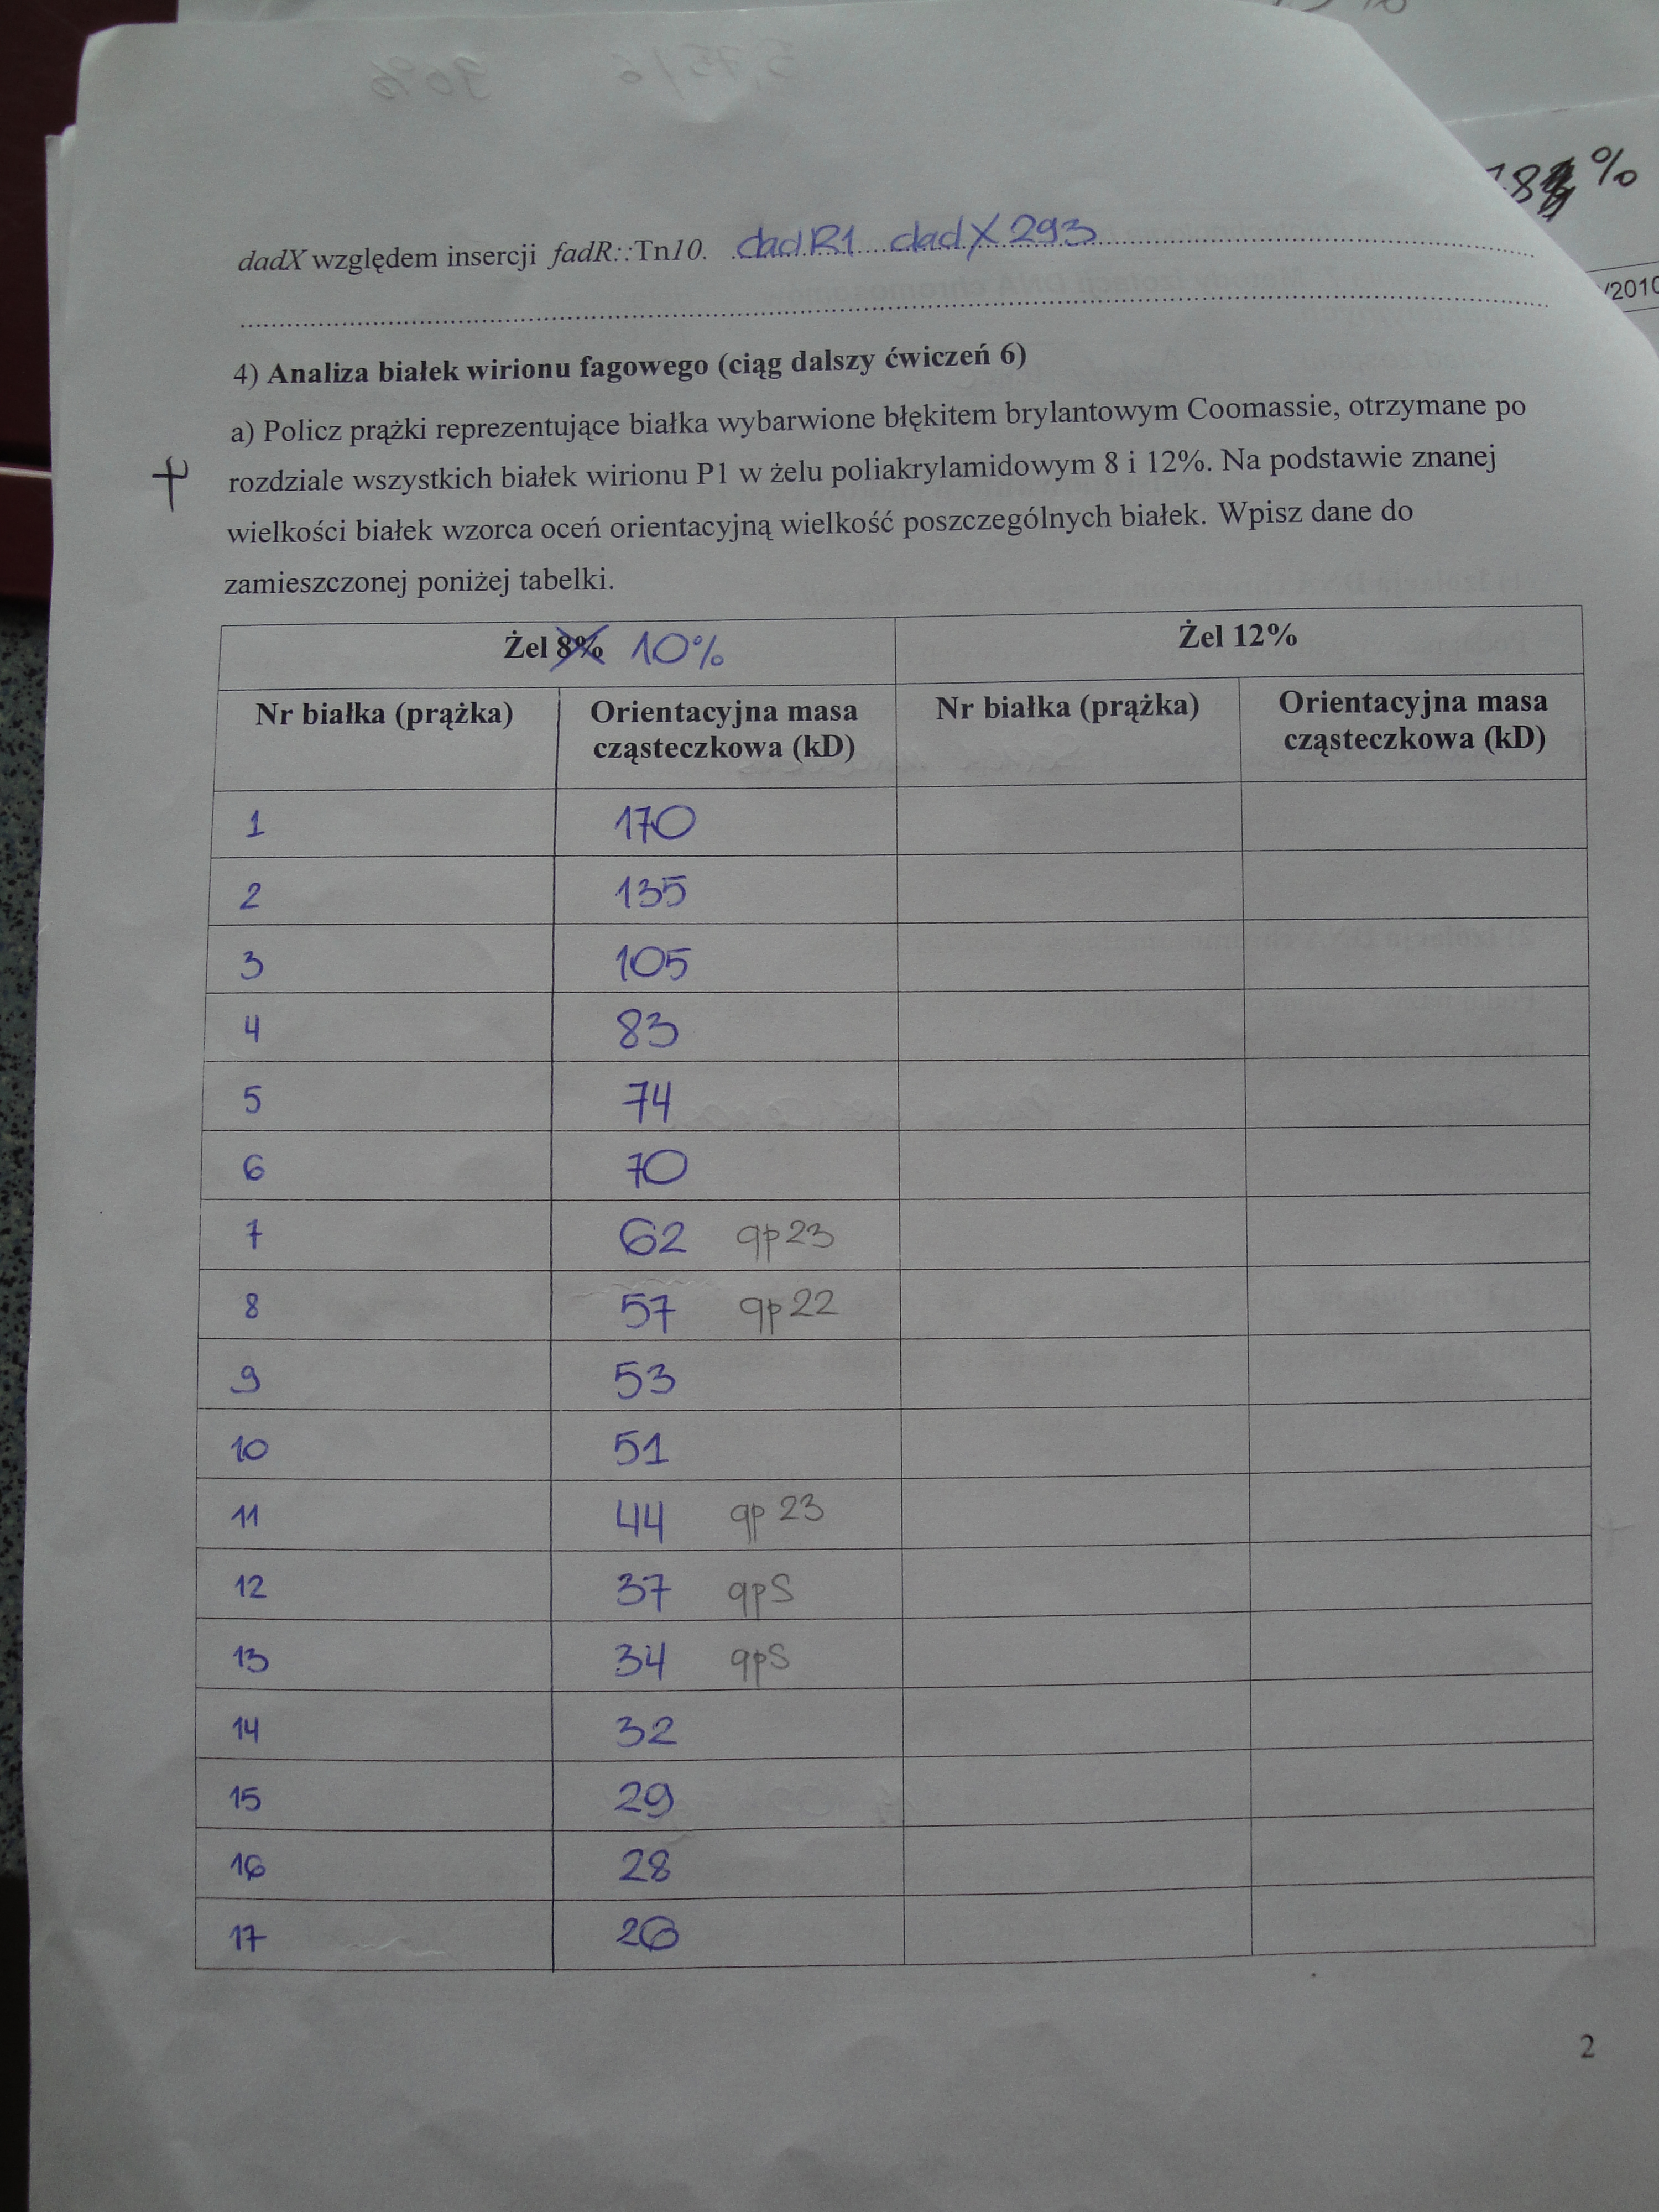 18 %
/2010
dadX względem insercji fadR::Tn10. dadR1 dadX 293
4) Analiza białek wirionu fagowego (ciąg dalszy ćwiczeń 6)
a) Policz prążki reprezentujące białka wybarwione błękitem brylantowym Coomassie, otrzymane po
rozdziale wszystkich białek wirionu P1 w żelu poliakrylamidowym 8 i 12%. Na podstawie znanej
wielkości białek wzorca oceń orientacyjną wielkość poszczególnych białek. Wpisz dane do
zamieszczonej poniżej tabelki.
Żel 8% 10% Żel 12%
Nr białka (prążka) Orientacyjna masa cząsteczkowa (kD) Nr białka (prążka) Orientacyjna masa cząsteczkowa (kD)
1 170
2 135
3 105
4 83
5 74
6 70
7 62 gp23
8 57 gp22
9 53
10 51
11 44 gp 23
12 37 gpS
13 34 gpS
14 32
15 29
16 28
17 26
2